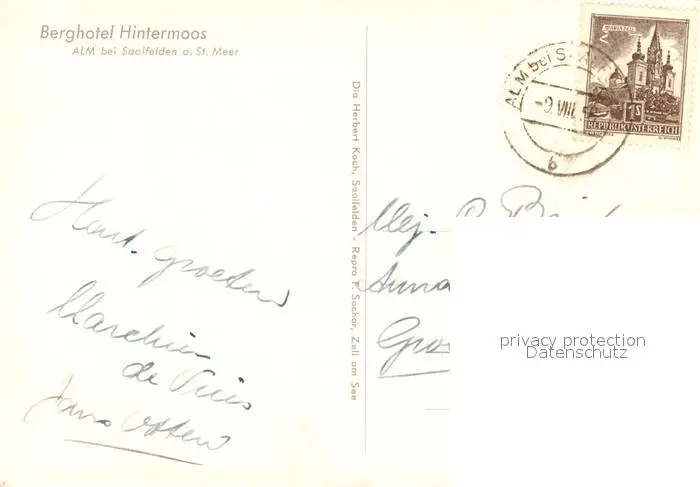 Berghotel Hintermoos
ALM bei Saalfelden a. St. Meer
MARIAZELL
1S
REPUBLIK ÖSTERREICH
ALM bei S
-9.VIII.
b
Dia Herbert Koch, Saalfelden - Repro F. Sochor, Zell am See
Hart. groeten
de Vries
Otten
Mej.
Anna
privacy protection
Datenschutz